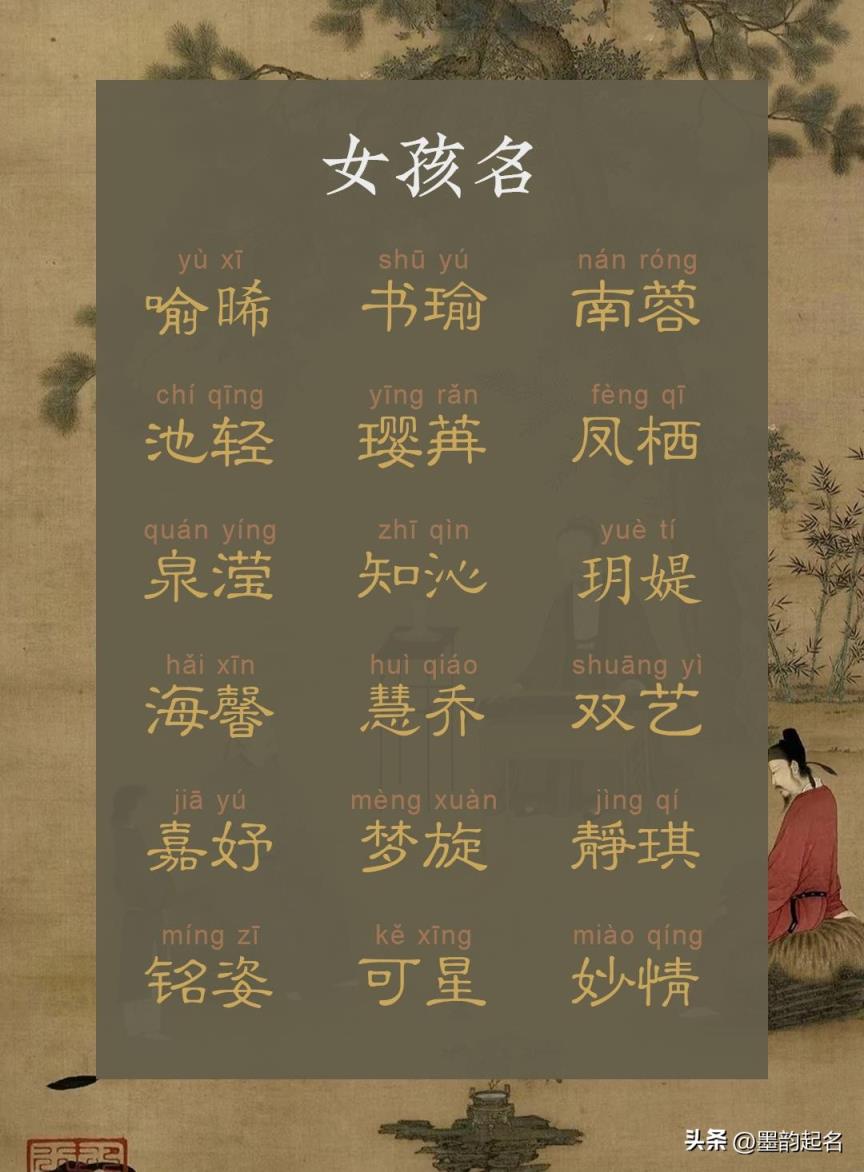 女孩名
yù xī shū yú nán róng
喻晞 书瑜 南蓉
chí qīng yīng rǎn fèng qī
池轻 璎苒 凤栖
quán yíng zhī qìn yuè tí
泉滢 知沁 玥媞
hǎi xīn huì qiáo shuāng yì
海馨 慧乔 双艺
jiā yú mèng xuàn jìng qí
嘉妤 梦旋 靜琪
míng zī kě xīng miào qíng
铭姿 可星 妙情
头条 @墨韵起名